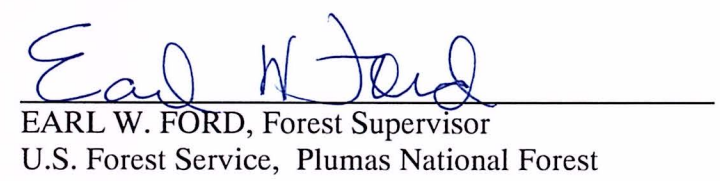 Earl W Ford
EARL W. FORD, Forest Supervisor
U.S. Forest Service, Plumas National Forest